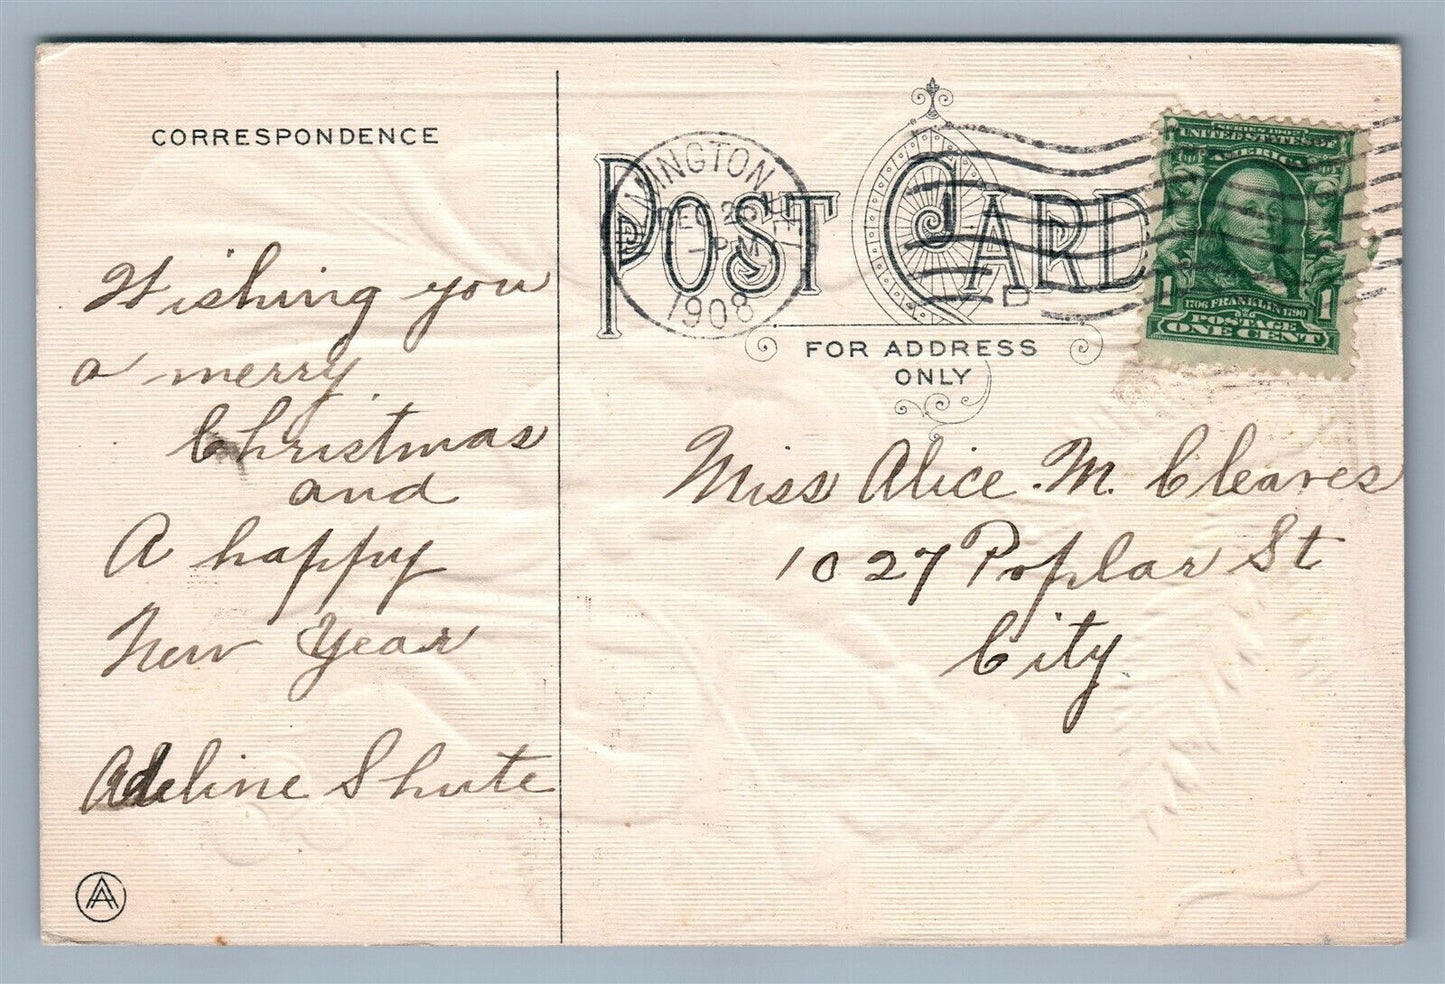 CORRESPONDENCE
Wishing you
a merry
Christmas
and
A happy
New Year
Adeline Shute
POST CARD
FOR ADDRESS
ONLY
MINGTON
DEC 2
PM
1908
D
SERIES 1902
UNITED STATES OF
AMERICA
1 1
1706 FRANKLIN 1790
POSTAGE
ONE CENT
Miss Alice M. Cleaves
1027 Poplar St
City.